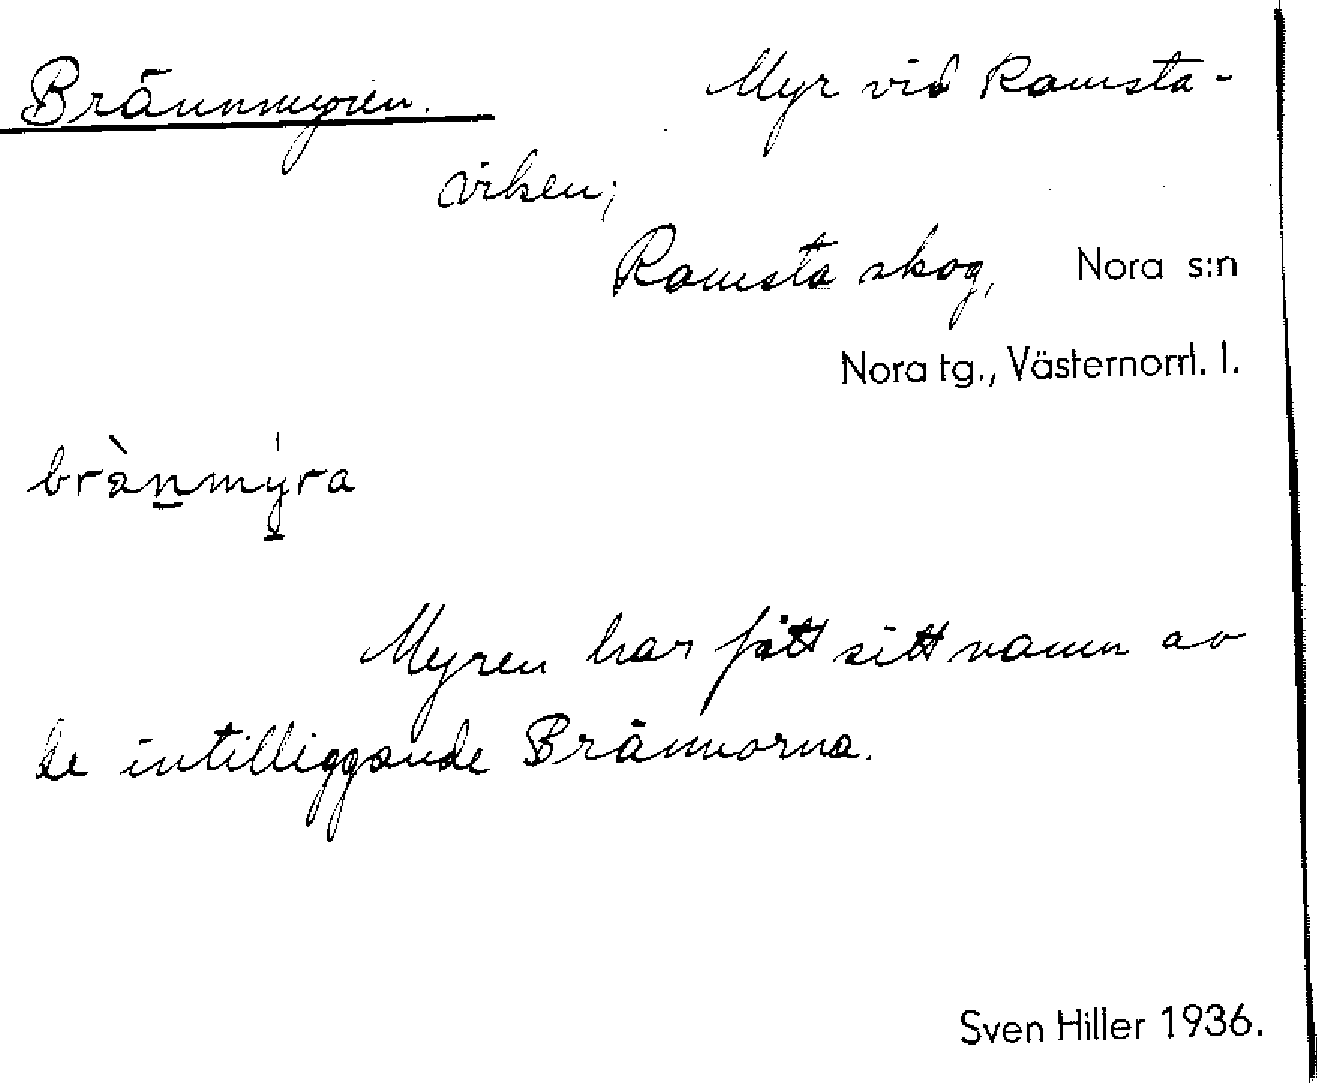 Brännmyren. Myr vid Ramsta-
virken;
Ramsta skog, Nora s:n
Nora tg., Västernorrl. l.
brànmýra
Myren har fått sitt namn av
de intilliggande Brännorna.
Sven Hiller 1936.